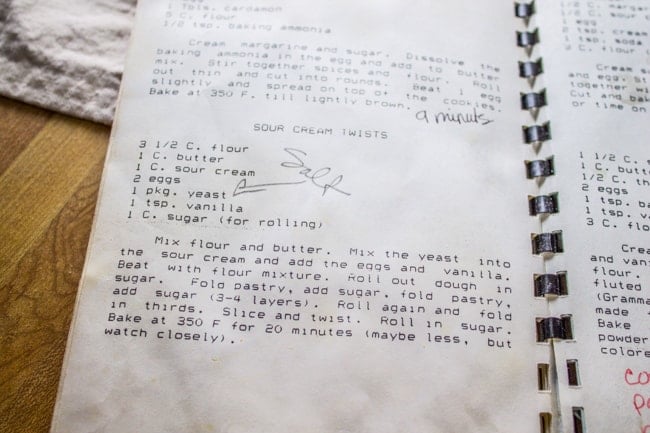 1 Tbls. cardamon
5 C. flour
1/2 tsp. baking ammonia
Cream margarine and sugar. Dissolve the
baking ammonia in the egg and add to butter
mix. Stir together spices and flour. Roll
out thin and cut into rounds. Beat 1 egg
slightly and spread on top of the cookies.
Bake at 350 F. till lightly brown. 9 minuts
SOUR CREAM TWISTS
3 1/2 C. flour
1 C. butter
1 C. sour cream
2 eggs
1 pkg. yeast
Salt
1 tsp. vanilla
1 C. sugar (for rolling)
Mix flour and butter. Mix the yeast into
the sour cream and add the eggs and vanilla.
Beat with flour mixture. Roll out dough in
sugar. Fold pastry, add sugar, fold pastry,
add sugar (3-4 layers). Roll again and fold
in thirds. Slice and twist. Roll in sugar.
Bake at 350 F for 20 minutes (maybe less, but
watch closely).
1/2 C. sour
1 egg
2 tsp. cream
tsp. soda
3 C. flour
Cream
and egg.
together
Cut and
or time on
1 1/2 C.
1 C.
1/2 C.
2 eggs
1 tsp.
1 tsp.
3 C.
and
flour.
fluted
made
Bake
powder
colore